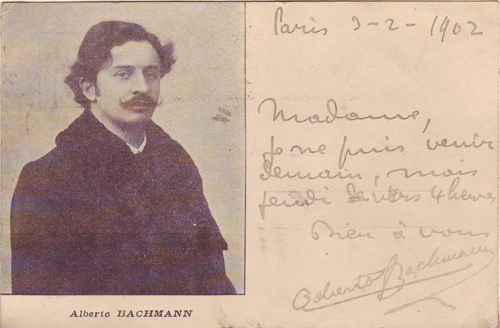 Paris 3-2-1902
Madame,
Je ne puis venir
demain, mais
jeudi vers 4 heures
Bien à vous
Alberto Bachmann
Alberto BACHMANN